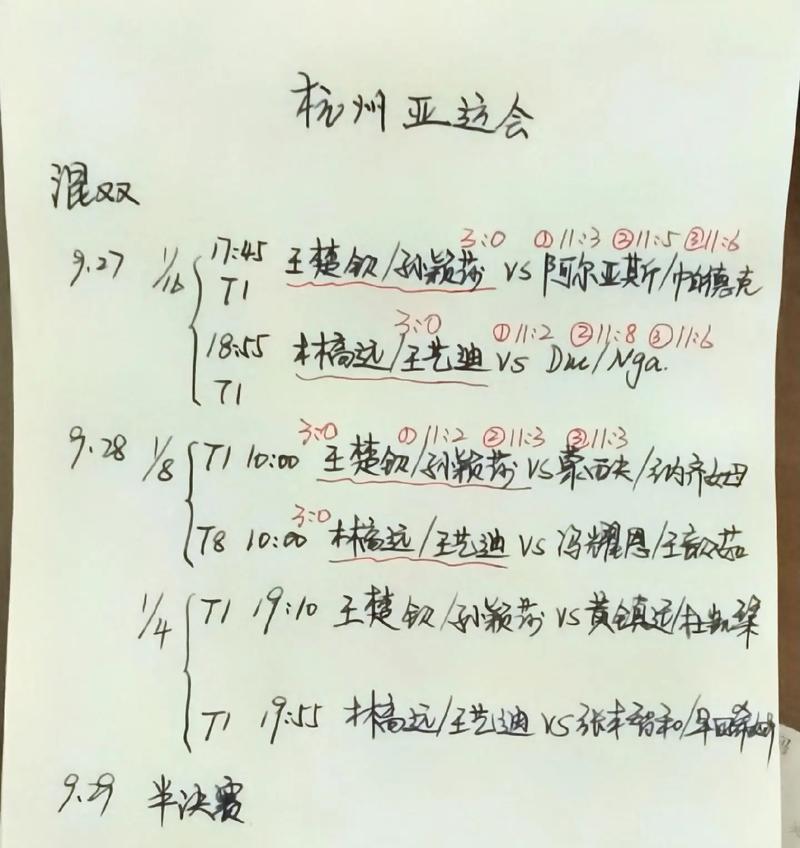 杭州亚运会
混双
3:0 ①11:3 ②11:5 ③11:6
9.27 1/16 17:45 王楚钦/孙颖莎 VS 阿尔亚斯/帕德克
T1
3:0 ①11:2 ②11:8 ③11:6
18:55 林高远/王艺迪 VS Duc/Nga.
T1
3:0 ①11:2 ②11:3 ③11:3
9.28 1/8 T1 10:00 王楚钦/孙颖莎 VS 蒙西夫/纳齐姆
3:0
T8 10:00 林高远/王艺迪 VS 冯耀恩/王歆茹
1/4 T1 19:10 王楚钦/孙颖莎 VS 黄镇廷/杜凯琹
T1 19:55 林高远/王艺迪 VS 张本智和/早田希娜
9.29 半决赛